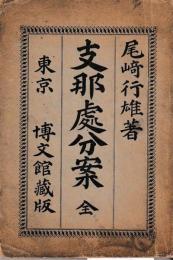 尾崎行雄著
支那處分案 全
東京 博文館藏版